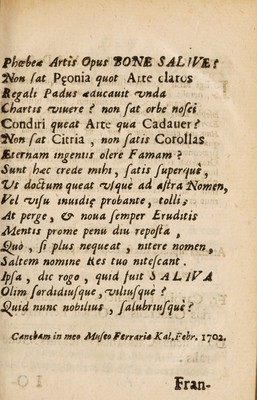 Phœbeæ Artis Opus BONE SALIVE?
Non sat Pęonia quot Arte claros
Regali Padus æducauit vnda
Chartis viuere? non sat orbe nosci
Condiri queat Arte qua Cadauer?
Non sat Citria, non satis Corollas
Æternam ingentis olere Famam?
Sunt hæc crede mihi, satis superquè,
Ut doctum queat vsquè ad astra Nomen,
Vel visu inuidię probante, tolli;
At perge, & noua semper Eruditis
Mentis prome penu diu reposta,
Quò, si plus nequeat, nitere nomen,
Saltem nomine Res tuo nitescant.
Ipsa, dic rogo, quid fuit SALIVA
Olim sordidiusque, viliusquè?
Quid nunc nobilius, salubriusquè?
Canebam in meo Museo Ferrariæ Kal. Febr. 1702.
Fran-